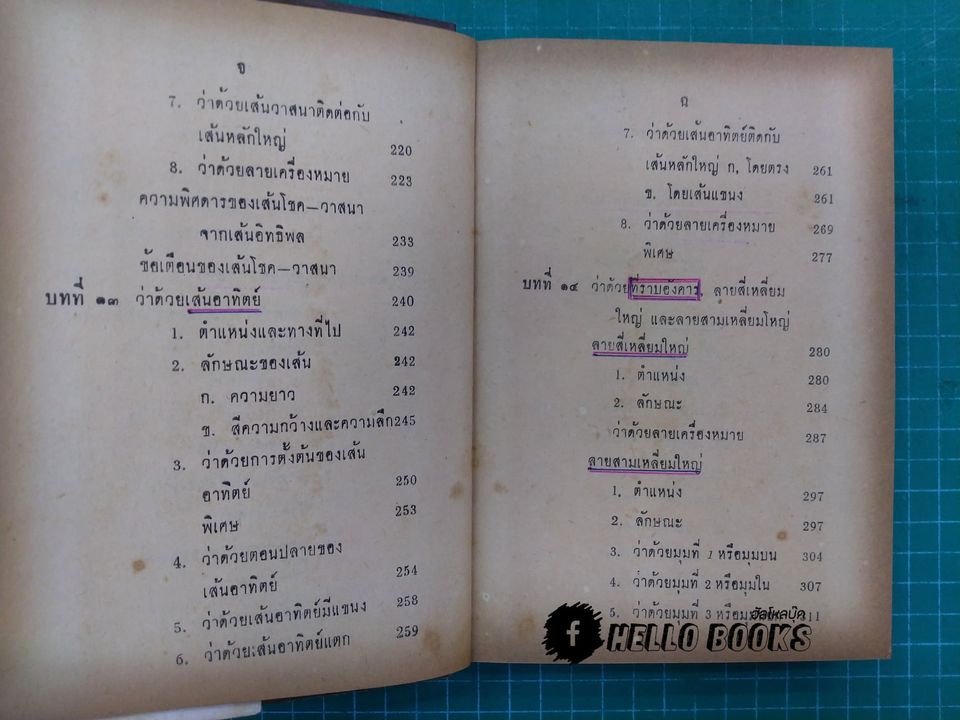 จ
7. ว่าด้วยเส้นวาสนาติดต่อกับ
เส้นหลักใหญ่ 220
8. ว่าด้วยลายเครื่องหมาย 223
ความพิศดารของเส้นโชค—วาสนา
จากเส้นอิทธิพล 233
ข้อเตือนของเส้นโชค—วาสนา 239
บทที่ ๑๓ ว่าด้วยเส้นอาทิตย์ 240
1. ตำแหน่งและทางที่ไป 242
2. ลักษณะของเส้น 242
ก. ความยาว 242
ข. สีความกว้างและความลึก 245
3. ว่าด้วยการตั้งต้นของเส้น
อาทิตย์ 250
พิเศษ 253
4. ว่าด้วยตอนปลายของ
เส้นอาทิตย์ 254
5. ว่าด้วยเส้นอาทิตย์มีแขนง 258
6. ว่าด้วยเส้นอาทิตย์แตก 259
ฉ
7. ว่าด้วยเส้นอาทิตย์ติดกับ
เส้นหลักใหญ่ ก, โดยตรง 261
ข. โดยเส้นแขนง 261
8. ว่าด้วยลายเครื่องหมาย 269
พิเศษ 277
บทที่ ๑๔ ว่าด้วยที่ราบอังคาร, ลายสี่เหลี่ยม
ใหญ่ และลายสามเหลี่ยมใหญ่
ลายสี่เหลี่ยมใหญ่ 280
1. ตำแหน่ง 280
2. ลักษณะ 284
ว่าด้วยลายเครื่องหมาย 287
ลายสามเหลี่ยมใหญ่
1. ตำแหน่ง 297
2. ลักษณะ 297
3. ว่าด้วยมุมที่ 1 หรือมุมบน 304
4. ว่าด้วยมุมที่ 2 หรือมุมใน 307
5. ว่าด้วยมุมที่ 3 หรือมุม 311
ฮัลโหลบุ๊ค
f HELLO BOOKS